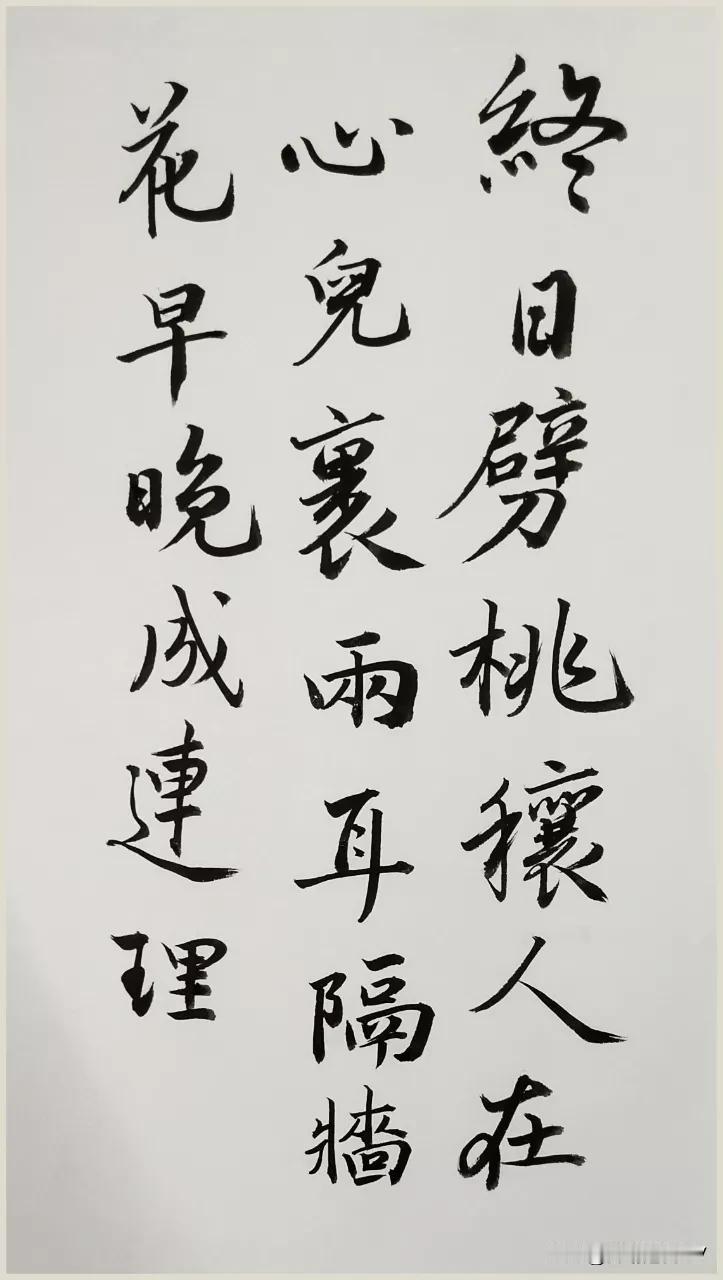 終日劈桃穰人在
心兒裏兩耳隔牆
花早晚成連理